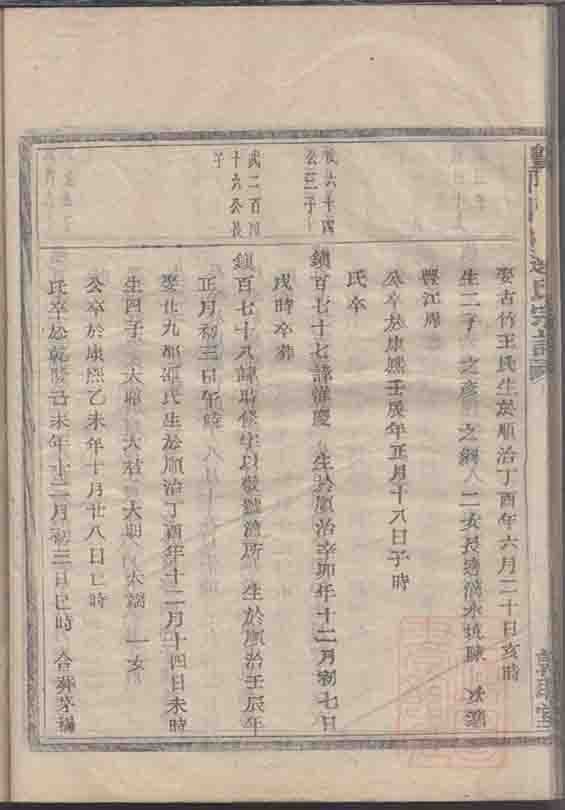 娶古竹王氏生於順治丁酉年六月二十日亥時
生二子 之彥 之綱 二女長適滴水填陳 次適
歷江周
公卒於康熙壬辰年正月十八日子時
氏卒
六十四
公三子
鎮百七十七諱 慶 生於順治辛卯年十二月初七日
戌時卒葬
武二百四
十六公長
子
鎮百七十八諱 字以敬號 所 生於順治壬辰年
正月初三日午時
娶廿九都 氏生於順治丁酉年十二月十四日未時
生四子 大 大 大 大 一女
公卒於康熙乙未年十月廿八日巳時
氏卒於乾隆己未年十二月初三日巳時 合葬茅
氏宗譜